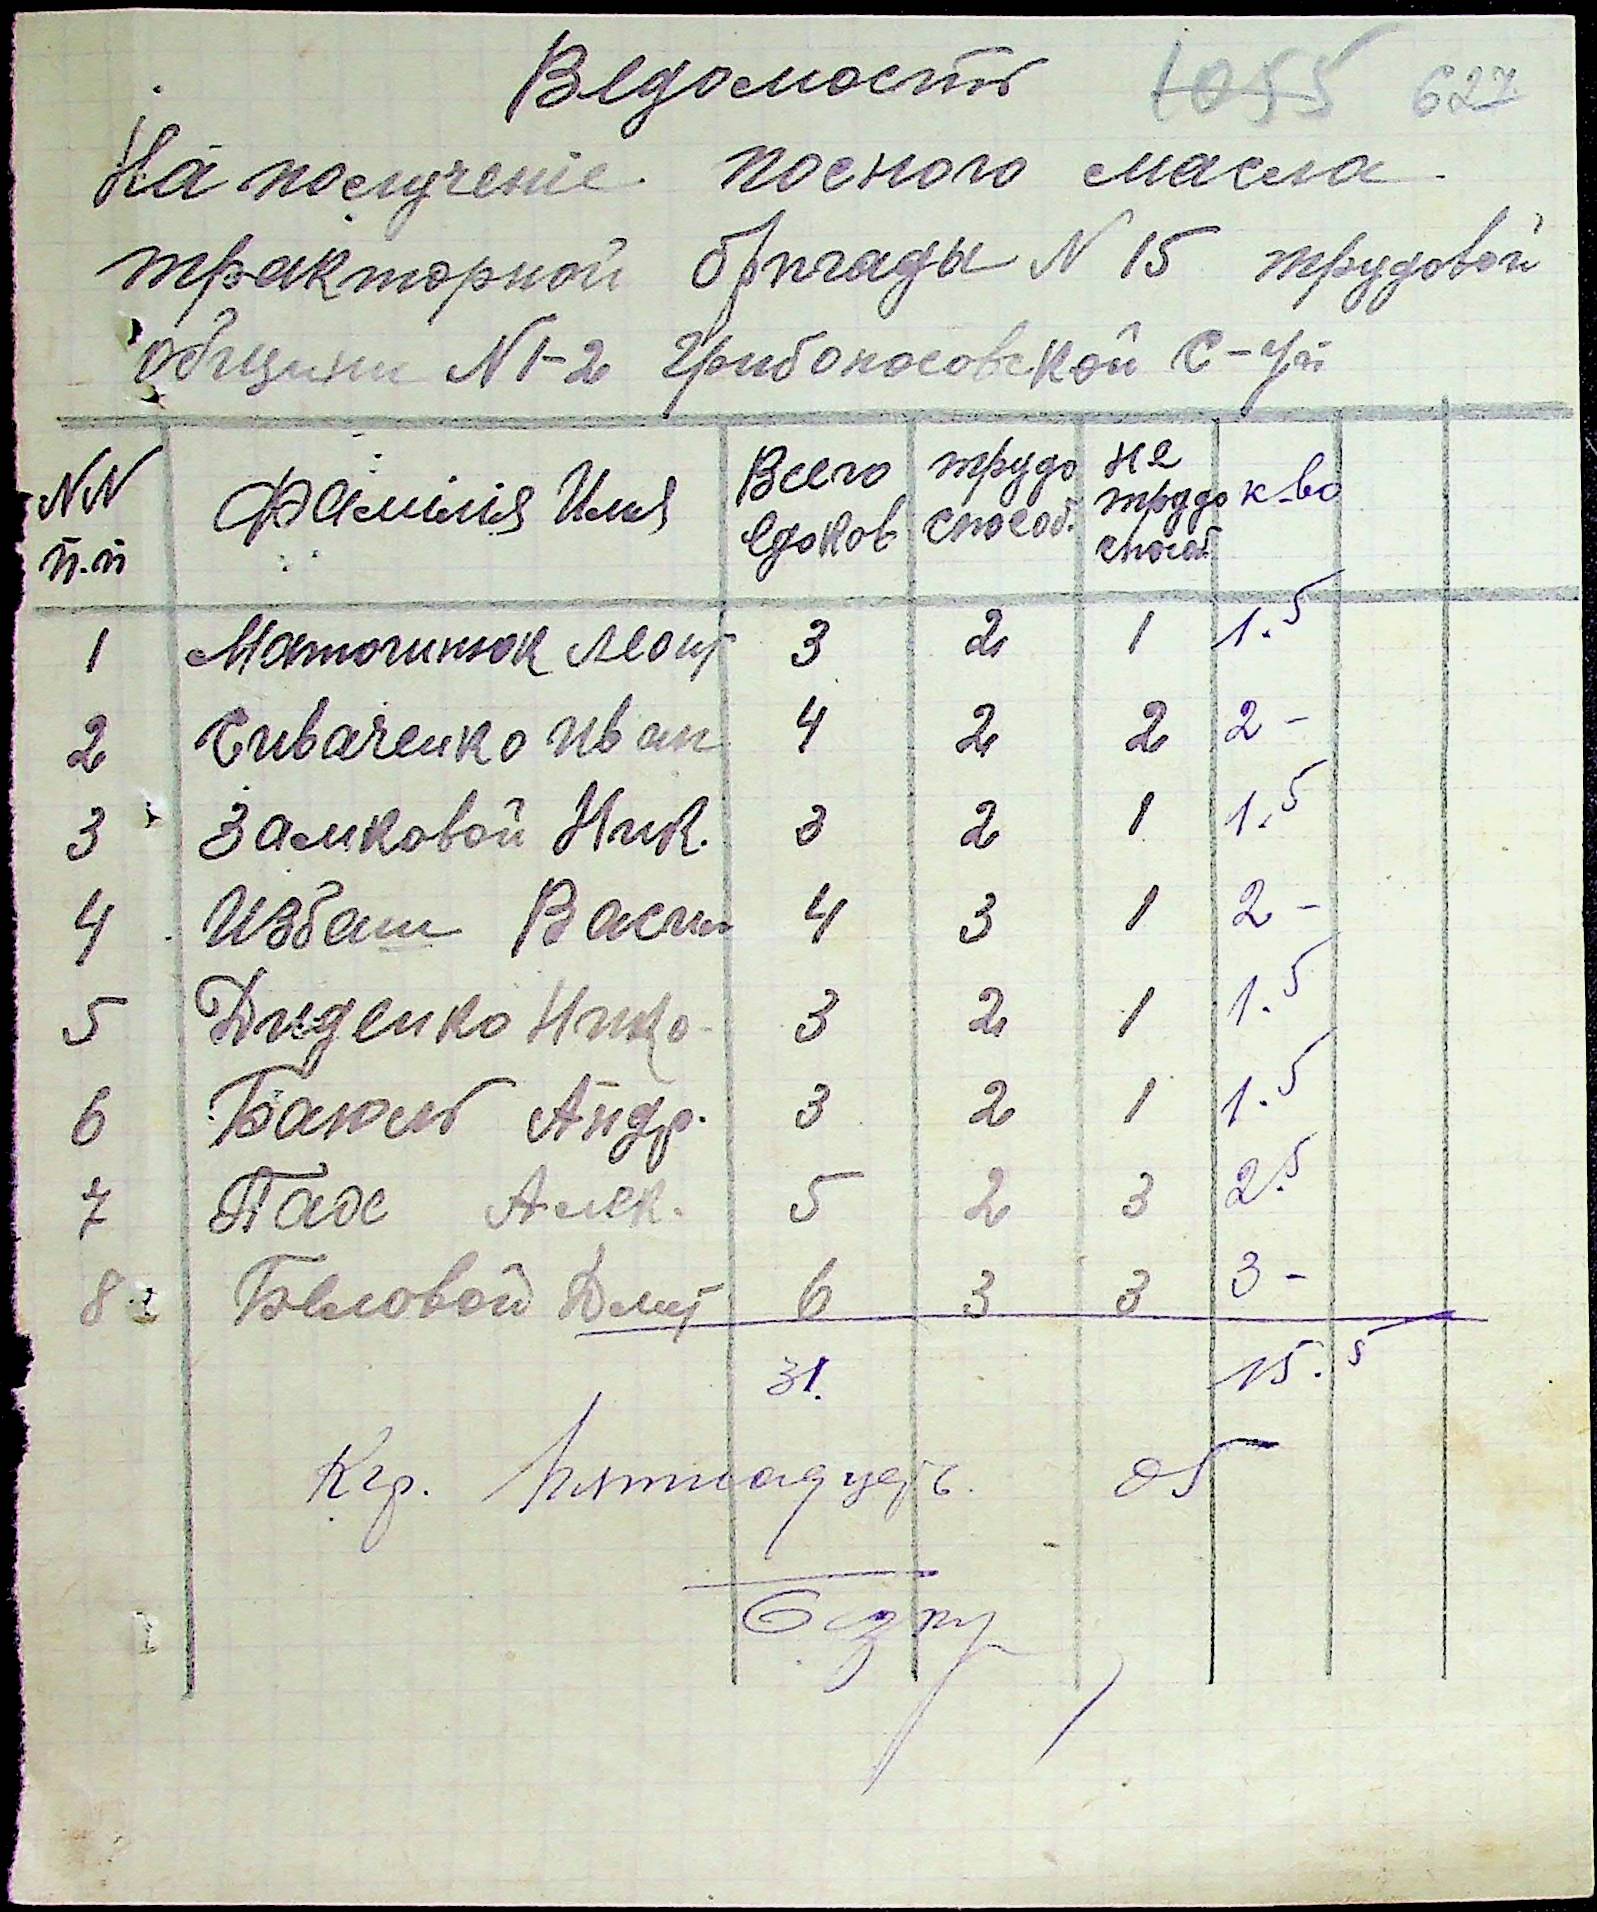 Ведомость 1055 627
На полученіе посного масла
тракторной бригады N 15 трудовой
общини N 1-2 Грибоносовской С-Уп
NN п.п Фамилія Имя Всего едоков трудо способ. не трудо способ к-во
1 Маточинюк Леонт 3 2 1 1.5
2 Сиваченко Иван 4 2 2 2 -
3 Замковой Ник. 3 2 1 1.5
4 Избаш Васил 4 3 1 2 -
5 Диденко Нико- 3 2 1 1.5
6 Баюль Андр. 3 2 1 1.5
7 Паде Алек. 5 2 3 2.5
8 Беловой Дмит 6 3 3 3 -
31. 15.5
Кгр. Пятнадцать. 05